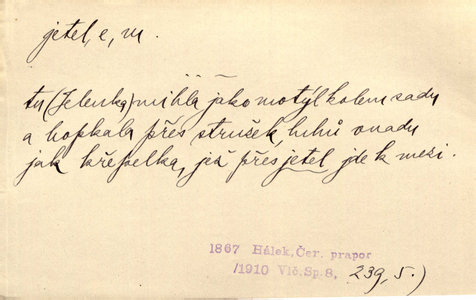 jetel, e, m.
tu (Jelenka) mihla jako motýl kolem sadu
a hopkala přes stružek, luhů vnadu
jak křepelka, jež přes jetel jde k mezi.
1867 Hálek, Čer. prapor
/1910 Vlč. Sp. 8, 239, 5.)